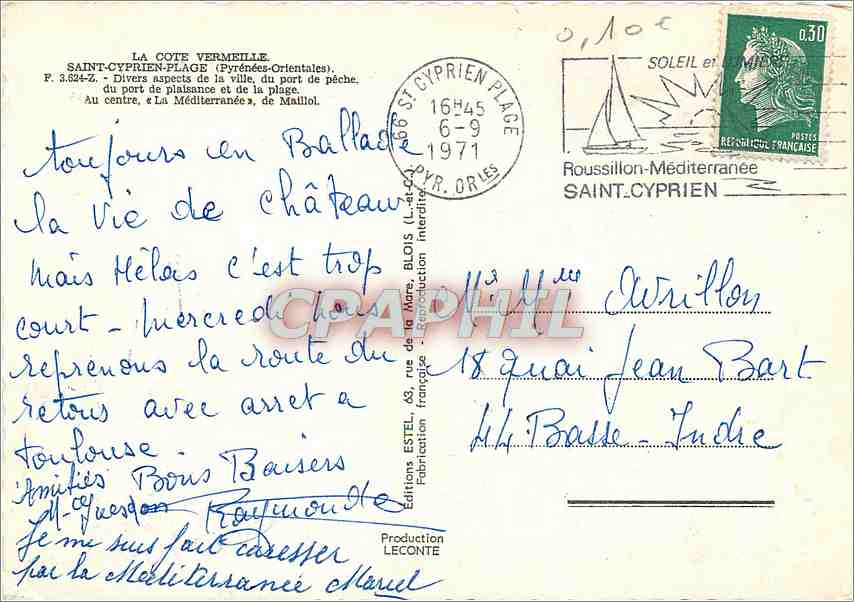 LA COTE VERMEILLE.
SAINT-CYPRIEN-PLAGE (Pyrénées-Orientales).
F. 3.624-Z. - Divers aspects de la ville, du port de pêche,
du port de plaisance et de la plage.
Au centre, « La Méditerranée », de Maillol.
toujours en Ballade
la vie de château
mais Hélas c'est trop
court - mercredi nous
reprenons la route du
retour avec arret a
toulouse
Amitiés Bons Baisers
Raymonde
je me suis fait caresser
par la Mediterranée Marcel
Editions ESTEL, 63, rue de la Mare, BLOIS (L.-et-C.)
Fabrication française - Reproduction interdite
Production
LECONTE
66 ST CYPRIEN PLAGE
16H45
6-9
1971
PYR. ORLES
0,10€
SOLEIL et LUMIERE
Roussillon-Méditerranée
SAINT-CYPRIEN
0,30
POSTES
REPUBLIQUE FRANÇAISE
CPAPHIL
Mr Mme Avrillon
18 quai Jean Bart
44 Basse-Indre